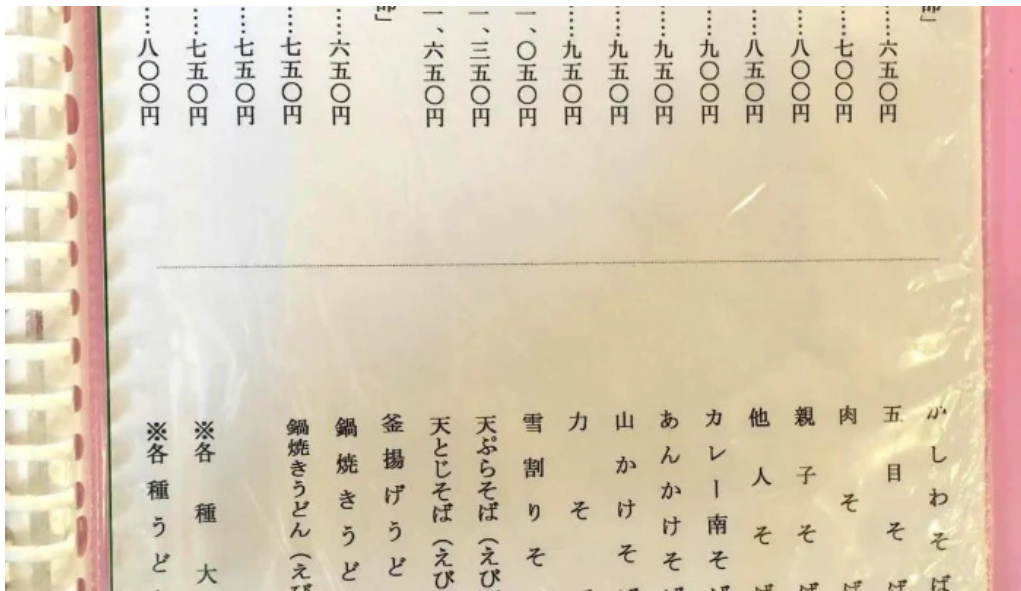 …六五〇円
…七〇〇円
…八〇〇円
…八五〇円
…九〇〇円
…九五〇円
…九五〇円
…九五〇円
一、〇五〇円
一、三五〇円
一、六五〇円
…六五〇円
…七五〇円
…七五〇円
…七五〇円
…八〇〇円
かしわそば
五目そば
肉そば
親子そば
他人そば
カレー南そば
あんかけそば
山かけそば
力そ
雪割りそ
天ぷらそば（えび
天とじそば（えび
釜揚げうど
鍋焼きうど
鍋焼きうどん（えび
※各種大
※各種うど